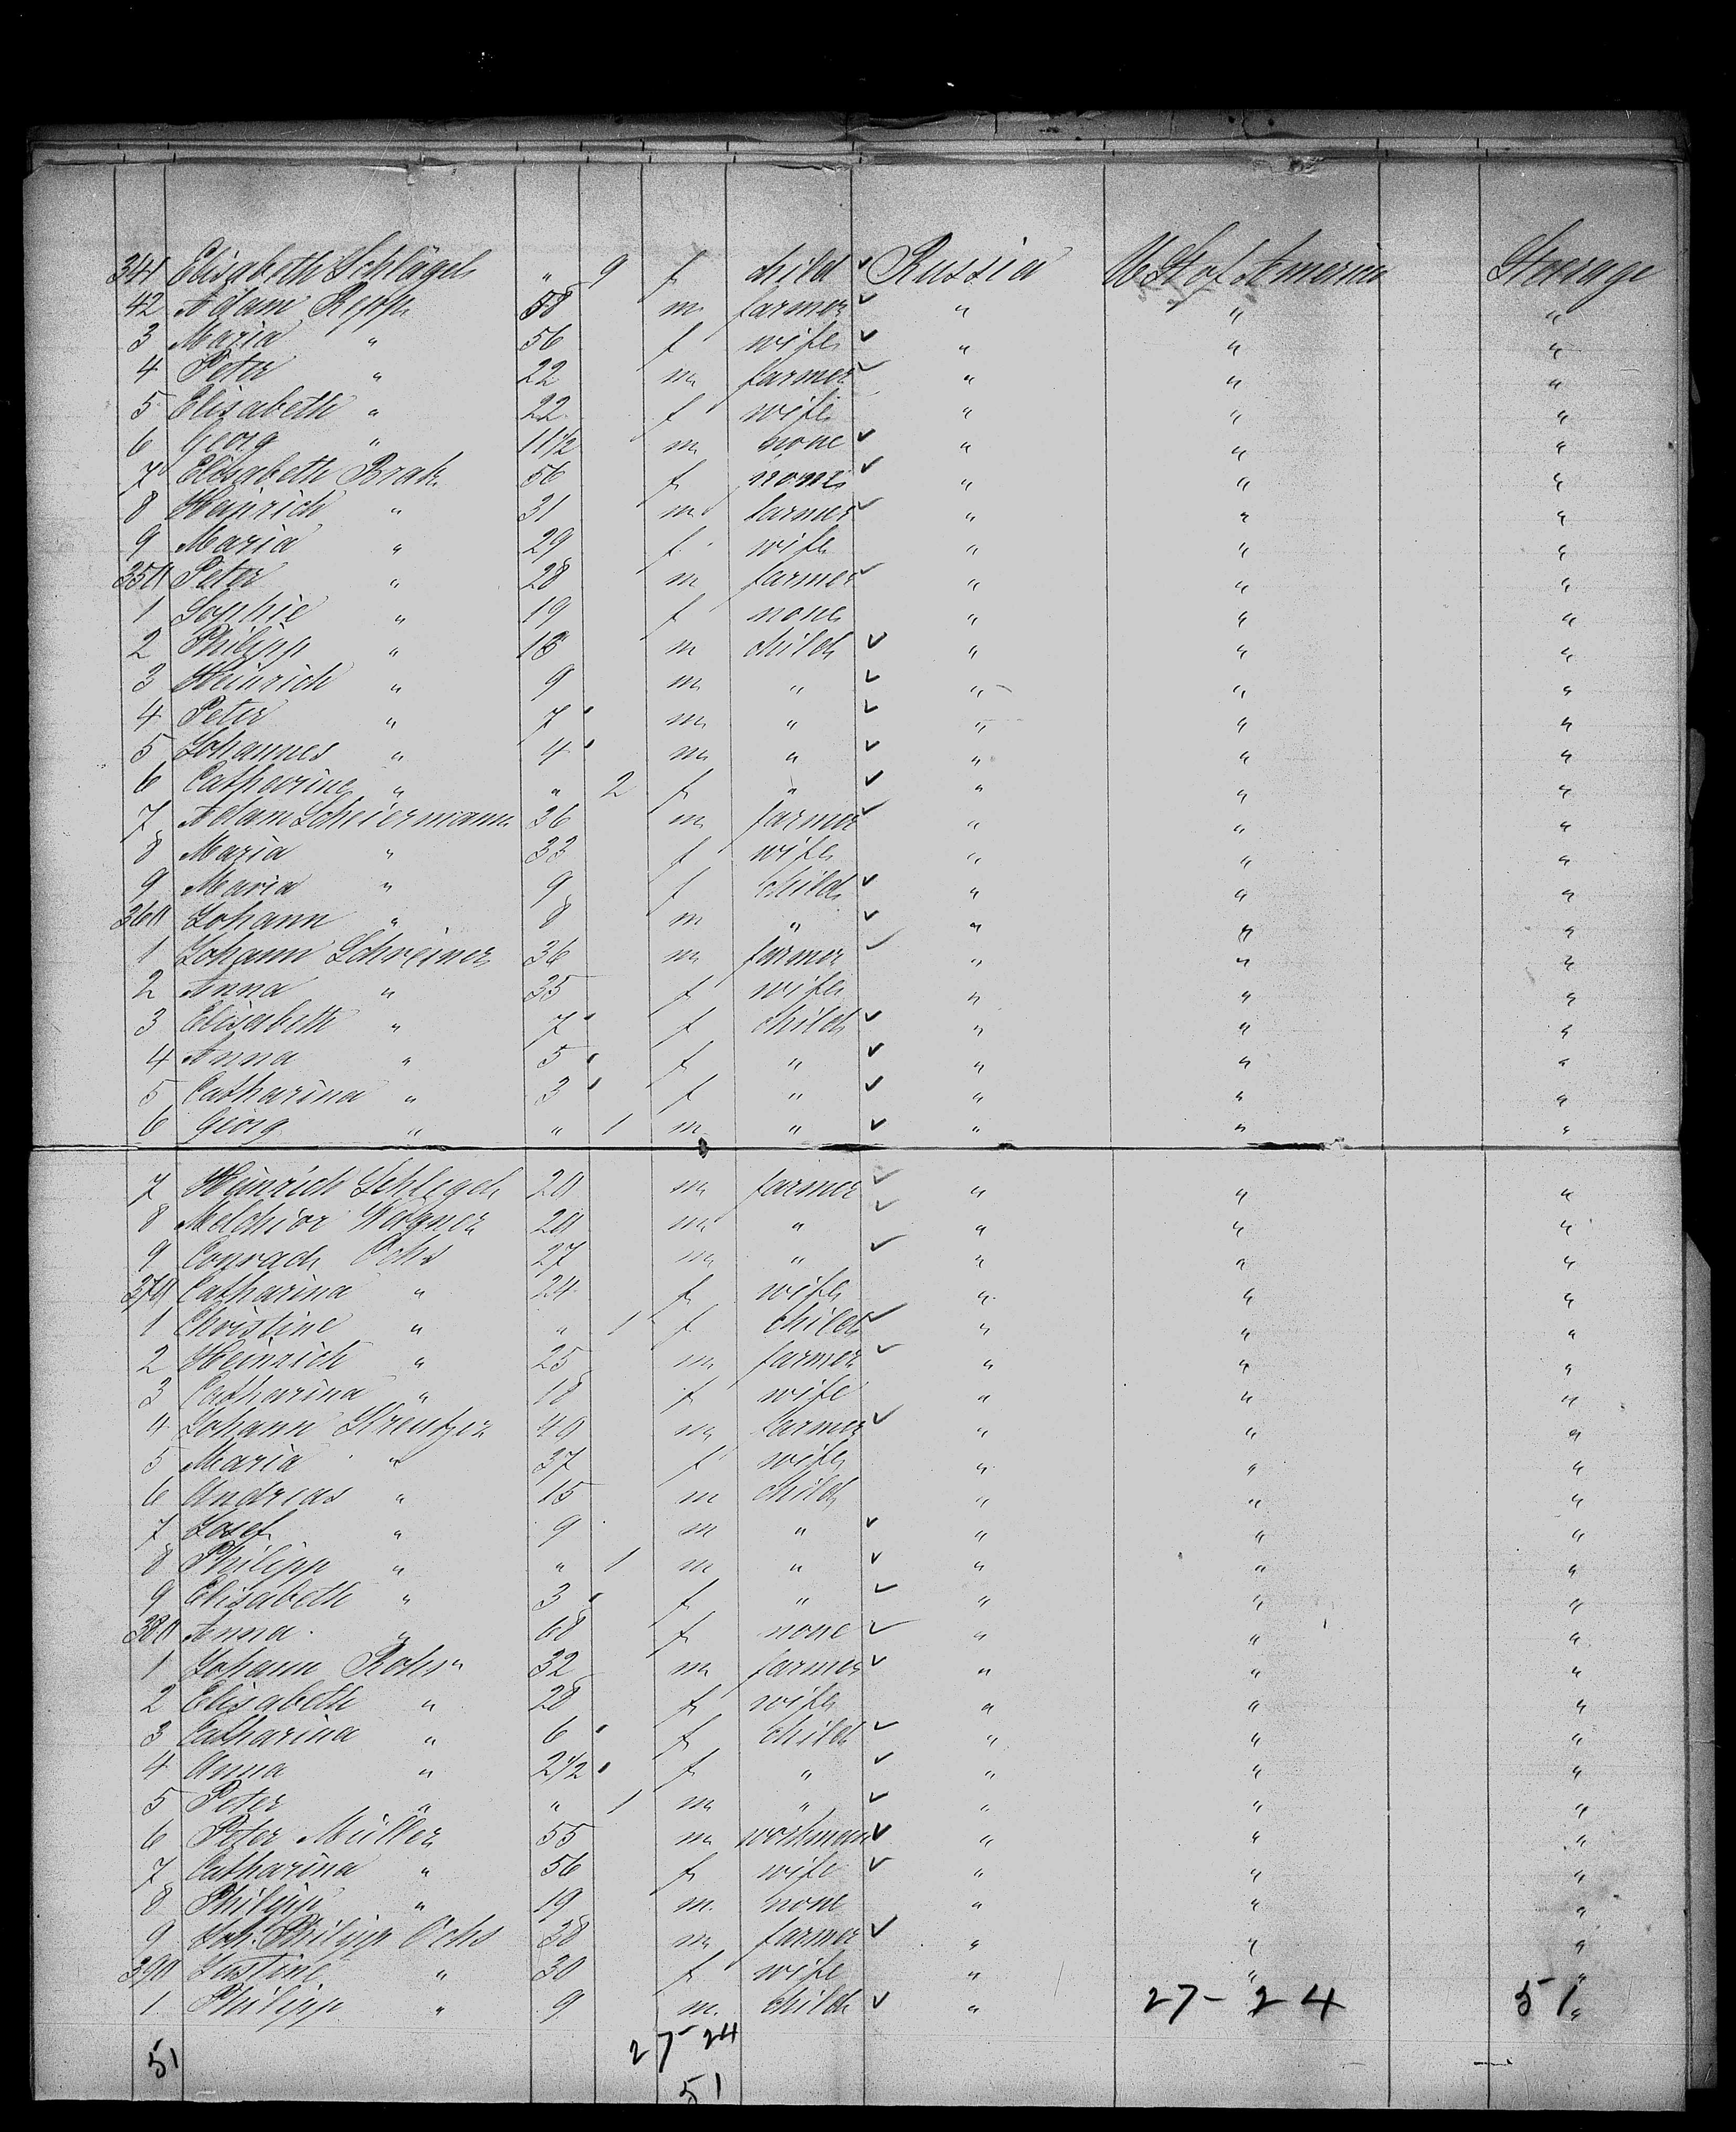 341 Elisabeth Schlägel " 9 f child ✓ Russia U St of America Steerage
42 Adam Repp 58 m farmer ✓ " " "
3 Maria " 56 f wife ✓ " " "
4 Peter " 22 m farmer ✓ " " "
5 Elisabeth " 22 f wife " " "
6 Georg " 11 1/2 m none ✓ " " "
7 Elisabeth Brak 56 f none ✓ " " "
8 Heinrich " 31 m farmer ✓ " " "
9 Maria " 29 f wife " " "
350 Peter " 28 m farmer ✓ " " "
1 Sophie " 19 f none " " "
2 Philipp " 18 m child ✓ " " "
3 Heinrich " 9 m " ✓ " " "
4 Peter " 7 m " ✓ " " "
5 Johannes " 4 m " ✓ " " "
6 Catharina " " 2 f " ✓ " " "
7 Adam Scheiermann 36 m farmer ✓ " " "
8 Maria " 33 f wife " " "
9 Maria " 9 f child ✓ " " "
360 Johann " 8 m " ✓ " " "
1 Johann Schreiner 36 m farmer ✓ " " "
2 Anna " 35 f wife " " "
3 Elisabeth " 7 f child ✓ " " "
4 Anna " 5 f " ✓ " " "
5 Catharina " 3 f " ✓ " " "
6 Georg " " 1 m " ✓ " " "
7 Heinrich Schlegel 20 m farmer ✓ " " "
8 Melchior Wagner 20 m " ✓ " " "
9 Conrad Ochs 27 m " ✓ " " "
370 Catharina " 24 f wife " " "
1 Christine " " 1 f child ✓ " " "
2 Heinrich " 25 m farmer ✓ " " "
3 Catharina " 18 f wife " " "
4 Johann 40 m farmer ✓ " " "
5 Maria " 37 f wife " " "
6 Andreas " 15 m child " " "
7 Josef " 9 m " ✓ " " "
8 Philipp " " 1 m " ✓ " " "
9 Elisabeth " 3 f " ✓ " " "
380 Anna " 68 f none ✓ " " "
1 Johann 32 m farmer ✓ " " "
2 Elisabeth " 28 f wife " " "
3 Catharina " 6 f child ✓ " " "
4 Anna " 2 1/2 f " ✓ " " "
5 Peter " " 1 m " ✓ " " "
6 Peter Müller 55 m workman ✓ " " "
7 Catharina " 56 f wife ✓ " " "
8 Philipp " 19 m none " " "
9 Joh. Philipp Ochs 38 m farmer ✓ " " "
390 Justine " 30 f wife " " "
1 Philipp " 9 m child ✓ " 27-24 51 "
51 27-24
51